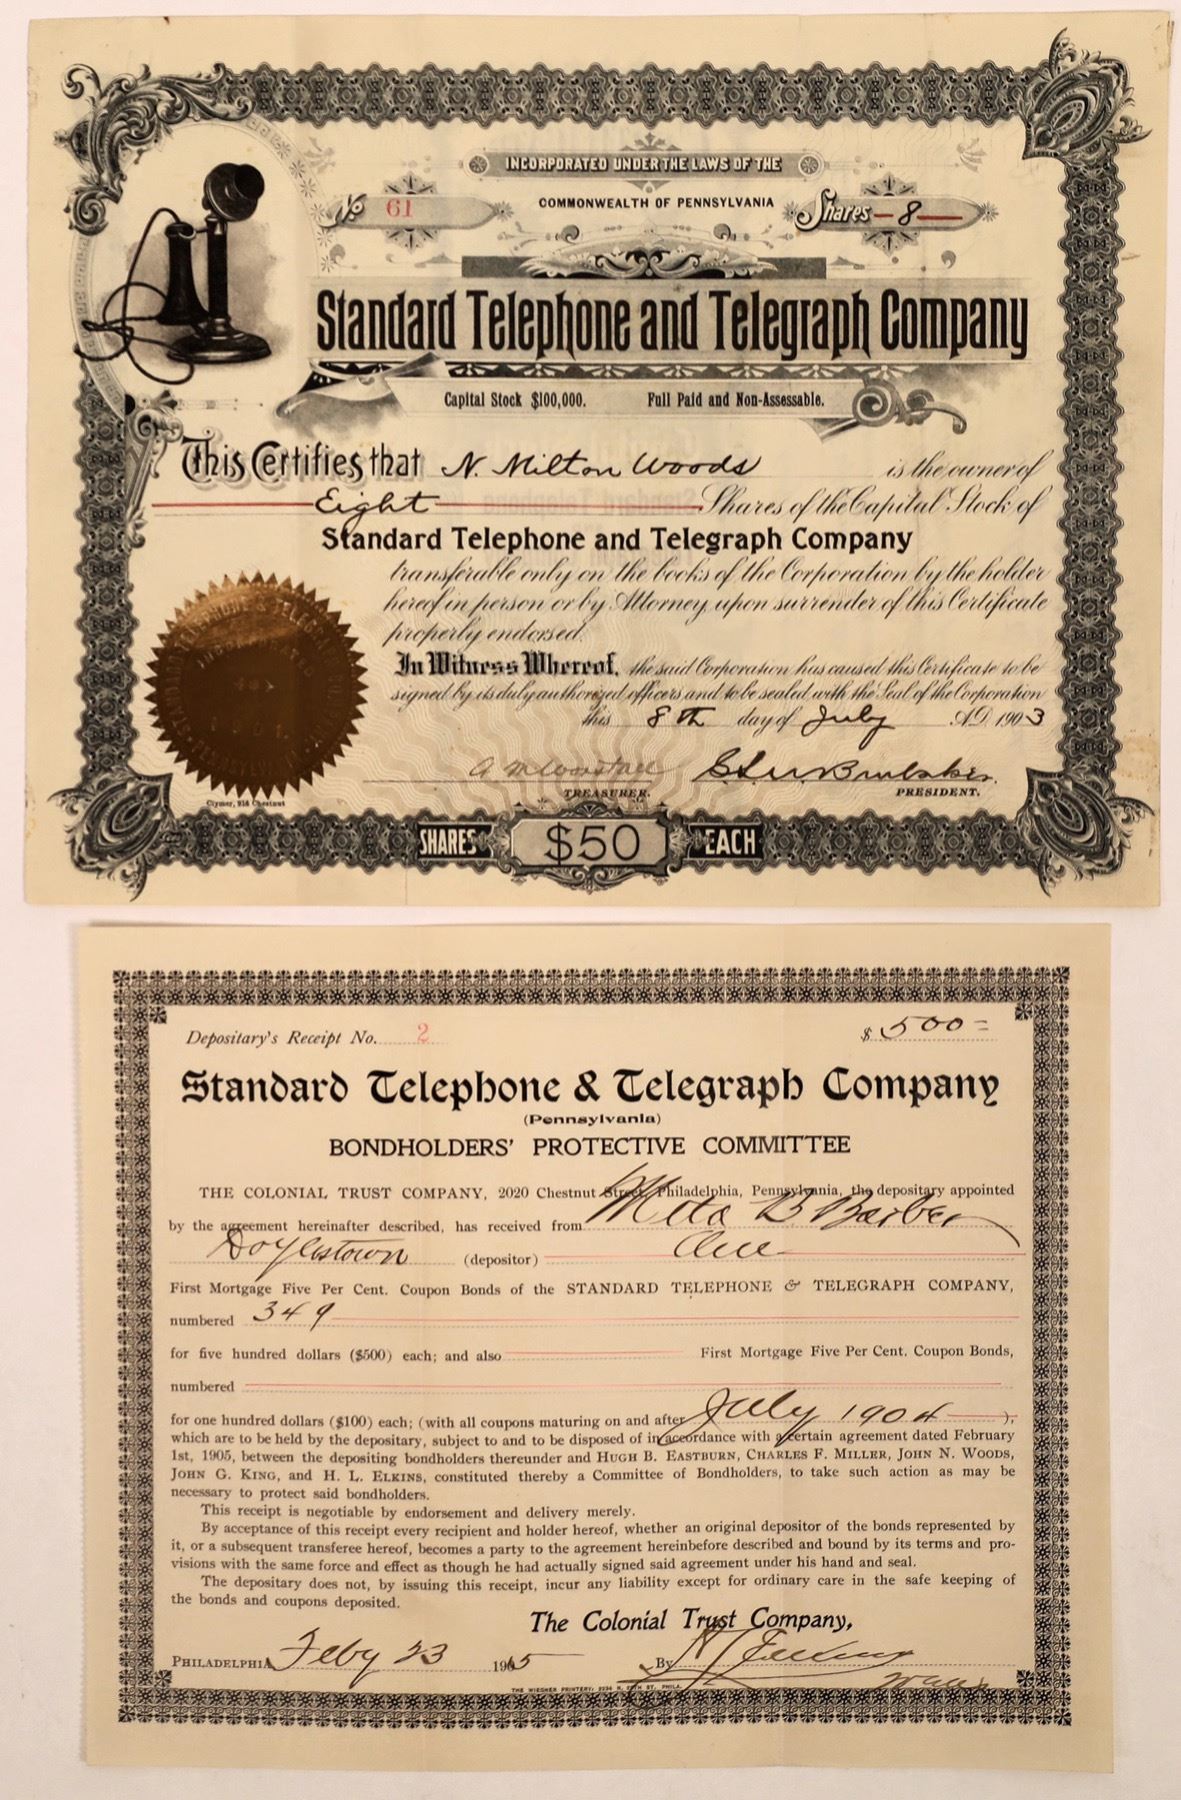 INCORPORATED UNDER THE LAWS OF THE
No 61
COMMONWEALTH OF PENNSYLVANIA
Shares 8
Standard Telephone and Telegraph Company
Capital Stock $100,000. Full Paid and Non-Assessable.
This Certifies that N. Milton Woods is the owner of
Eight Shares of the Capital Stock of
Standard Telephone and Telegraph Company
transferable only on the books of the Corporation by the holder
hereof in person or by Attorney upon surrender of this Certificate
properly endorsed.
In Witness Whereof, the said Corporation has caused this Certificate to be
signed by its duly authorized officers and to be sealed with the Seal of the Corporation
this 8th day of July A.D. 1903
TREASURER. PRESIDENT.
Clymer, 914 Chestnut
SHARES $50 EACH
Depositary's Receipt No. 2 $ 500=
Standard Telephone & Telegraph Company
(Pennsylvania)
BONDHOLDERS' PROTECTIVE COMMITTEE
THE COLONIAL TRUST COMPANY, 2020 Chestnut Street, Philadelphia, Pennsylvania, the depositary appointed
by the agreement hereinafter described, has received from Meta B Barber
Doylestown (depositor) One
First Mortgage Five Per Cent. Coupon Bonds of the STANDARD TELEPHONE & TELEGRAPH COMPANY,
numbered 349
for five hundred dollars ($500) each; and also First Mortgage Five Per Cent. Coupon Bonds,
numbered
for one hundred dollars ($100) each; (with all coupons maturing on and after July 1904 ),
which are to be held by the depositary, subject to and to be disposed of in accordance with a certain agreement dated February
1st, 1905, between the depositing bondholders thereunder and HUGH B. EASTBURN, CHARLES F. MILLER, JOHN N. WOODS,
JOHN G. KING, and H. L. ELKINS, constituted thereby a Committee of Bondholders, to take such action as may be
necessary to protect said bondholders.
This receipt is negotiable by endorsement and delivery merely.
By acceptance of this receipt every recipient and holder hereof, whether an original depositor of the bonds represented by
it, or a subsequent transferee hereof, becomes a party to the agreement hereinbefore described and bound by its terms and pro-
visions with the same force and effect as though he had actually signed said agreement under his hand and seal.
The depositary does not, by issuing this receipt, incur any liability except for ordinary care in the safe keeping of
the bonds and coupons deposited.
The Colonial Trust Company,
PHILADELPHIA Feby 23 1905 By